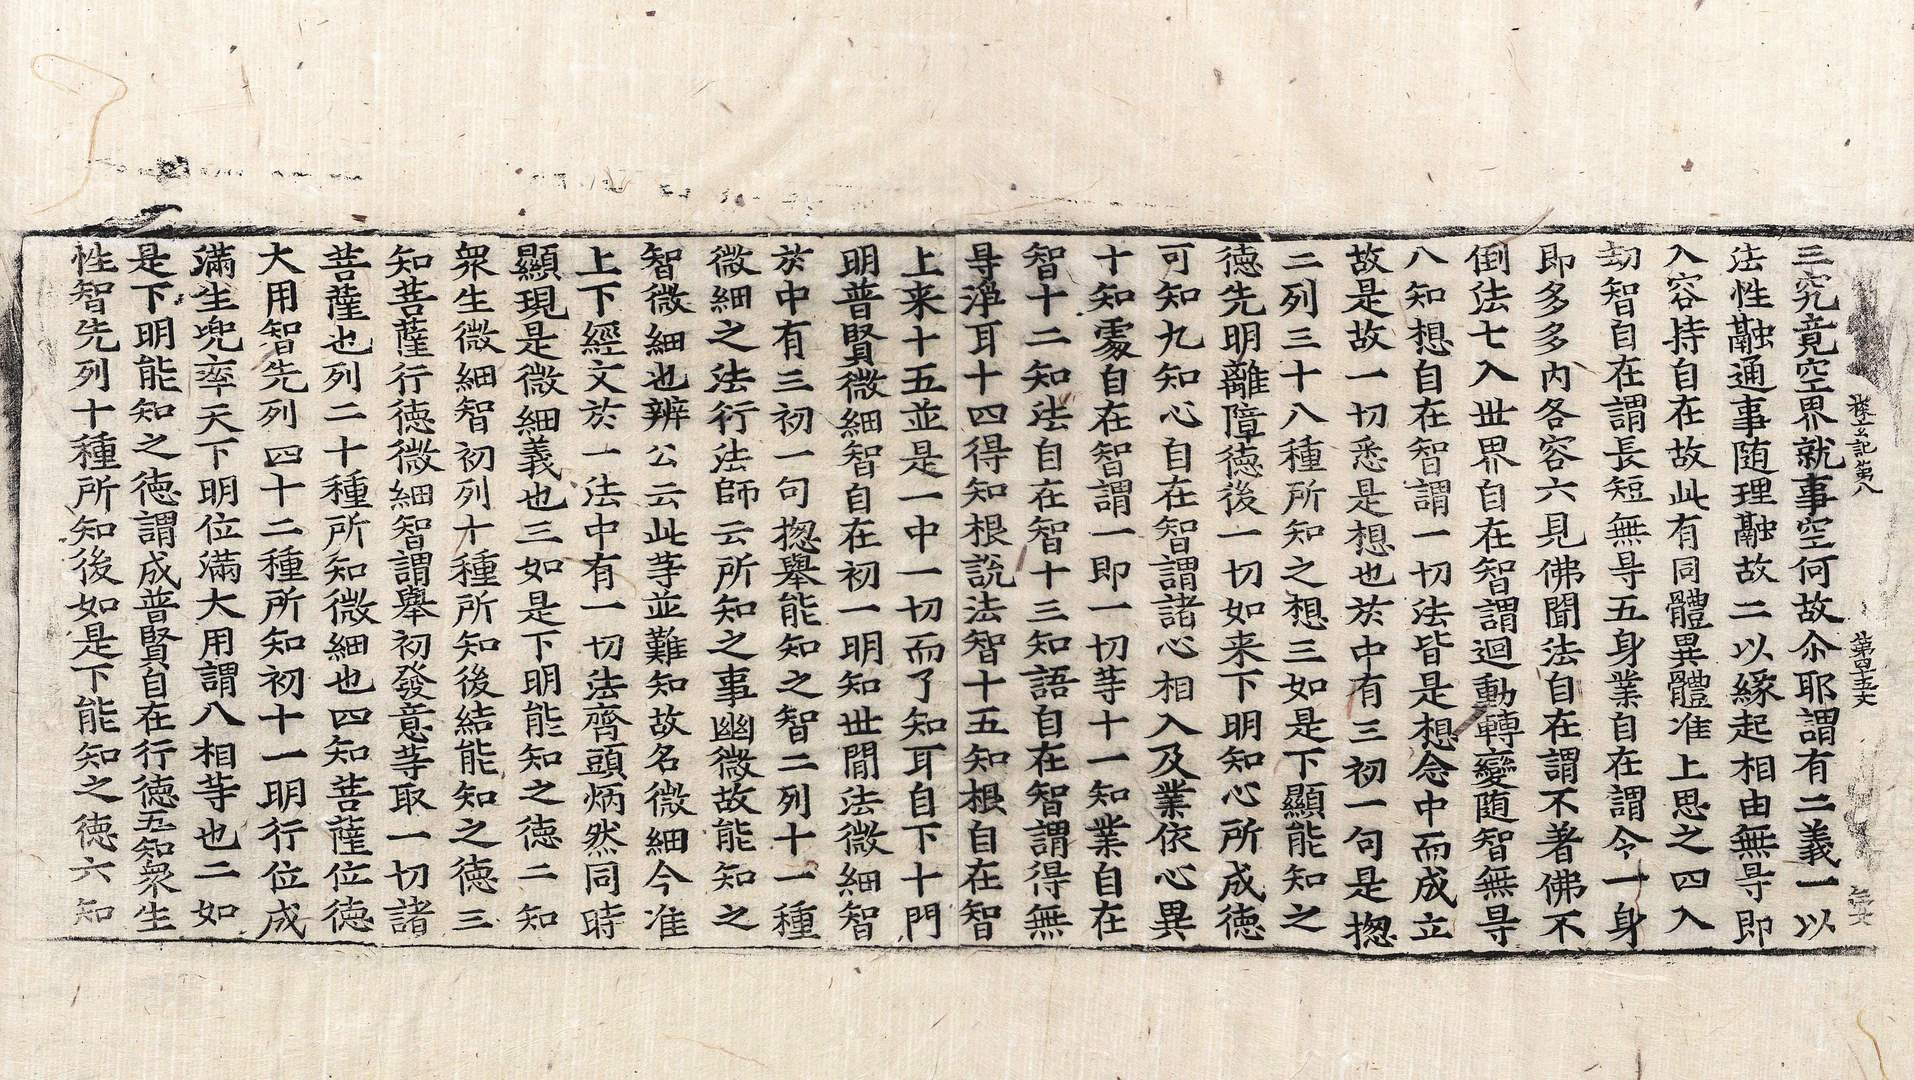 探玄記第八　第四十五丈
三究竟空界就事空何故尒耶謂有二義一以
法性融通事随理融故二以緣起相由無导即
入容持自在故此有同體異體准上思之四入
劫智自在謂長短無导五身業自在謂令一身
即多多內各容六見佛聞法自在謂不著佛不
倒法七入世界自在智謂迴動轉變随智無导
八知想自在智謂一切法皆是想念中而成立
故是故一切悉是想也於中有三初一句是揔
二列三十八種所知之想三如是下顯能知之
徳先明離障徳後一切如来下明知心所成徳
可知九知心自在智謂諸心相入及業依心異
十知處自在智謂一即一切䓁十一知業自在
智十二知法自在智十三知語自在智謂得無
导淨耳十四得知根說法智十五知根自在智
上来十五並是一中一切而了知耳自下十門
明普賢微細智自在初一明知世間法微細智
於中有三初一句揔舉能知之智二列十一種
微細之法行法師云所知之事幽微故能知之
智微細也辨公云此䓁並難知故名微細今准
上下經文於一法中有一切法齊頭炳然同時
顯現是微細義也三如是下明能知之徳二知
衆生微細智初列十種所知後結能知之徳三
知菩薩行徳微細智謂舉初發意䓁取一切諸
菩薩也列二十種所知微細也四知菩薩位徳
大用智先列四十二種所知初十一明行位成
滿生兜率天下明位滿大用謂八相䓁也二如
是下明能知之徳謂成普賢自在行徳五知衆生
性智先列十種所知後如是下能知之徳六知